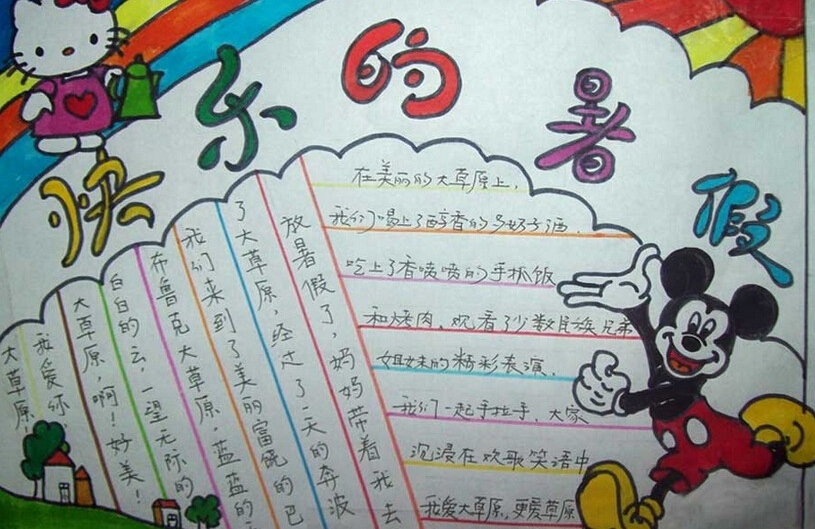 快乐的暑假
放暑假了，妈妈带着我去
了大草原，经过了三天的奔波
我们来到了美丽富饶的巴
布鲁克大草原，蓝蓝的
白白的云，一望无际的
大草原，啊！好美！
我爱你
大草原
在美丽的大草原上，
我们喝上了醇香的马奶子酒，
吃上了香喷喷的手抓饭
和烤肉，观看了少数民族兄弟
姐妹的精彩表演，
我们一起手拉手，大家
沉浸在欢歌笑语中
我爱大草原，更爱草原